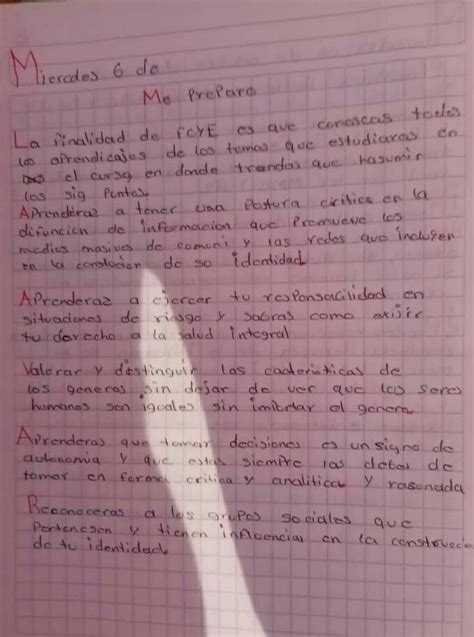 Miercdes 6 de
Me Preparo
La finalidad de FCYE es que conoscas todos
los aprendicajes de los temas que estudiaras en
el curso en donde trendas que hasumir
los sig Puntos.
APrenderaz a tener una Postura critica en la
difuncion de informacion que Promueve los
medios masivos de comuni y las redes que incluyen
en la constorien de so identidad
APrenderaz a ejercer tu responsacilidad en
situaciones de riesgo y sabras como exisir
tu derecho a la salud integral
Valorar y distinguir las cacteristicas de
los generos sin dejar de ver que los seres
humanos son iguales sin imbortar el genero.
APrenderas que tomar decisiones es un signo de
autonomia y que estas siempre las debes de
tomar en forma critica y analitica y rasonada
Reconoceras a los grupos sociales que
Pertenesen y tienen influencias en la construcció
de tu identidad.